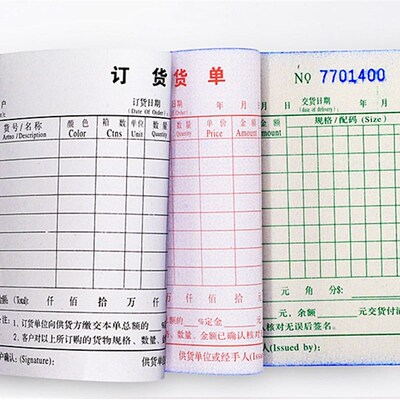 订货货单
NO 7701400
户 订货日期 日期 年 月 交货日期 年 月
(Date Of Order): Of Order): (date of delivery):
货号/名称 颜色 箱数 单位 数量 数量 单价 金额 金额 规格/配码(Size)
Artno/Description Color Ctns Unit Quantity Quantity Price Amount Amount
金额(Total): 仟 佰 拾 万 仟 万 仟 佰 拾 元 角 分$:
注: 1、订货单位向供方缴交本单总额的 %定金 元,余额 元交货付清
2、客户对以上所订购的货物规格、数量、 数量、金额已确认核对无误后签名。
客户确认:(Signature): 供货单位 供货单位或经手人(Issued (Issued by):